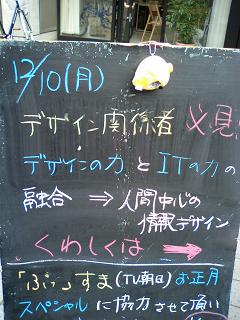 12/10(月)
デザイン関係者 必見
デザインの力 と ITの力の
融合 ⇒ 人間中心の
情報デザイン
くわしくは →
「ぷっ」すま(TV朝日)お正月
スペシャルに協力させて頂い